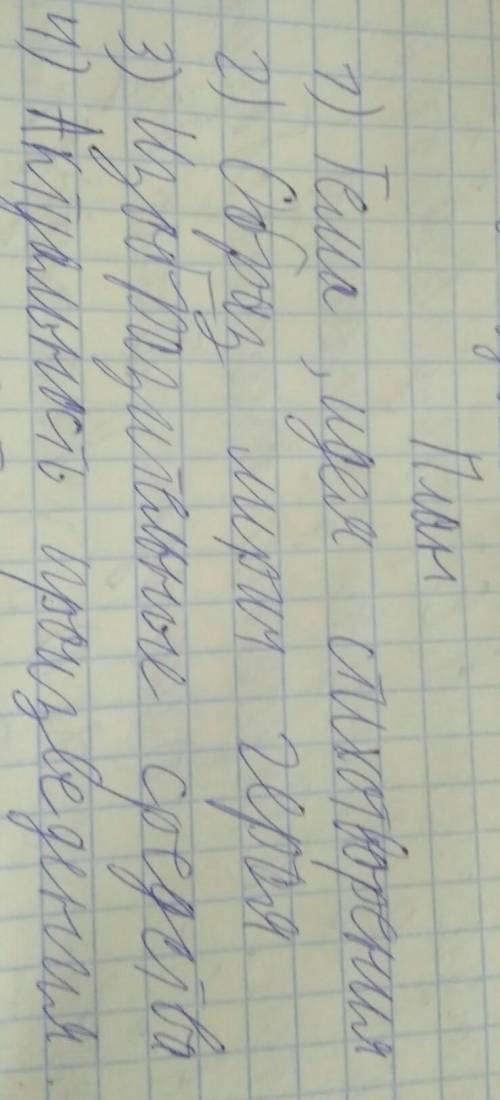 План
1) Тема, идея стихотворения
2) Образ лирич героя
3) Изобразительные средства
4) Актуальность произведения.